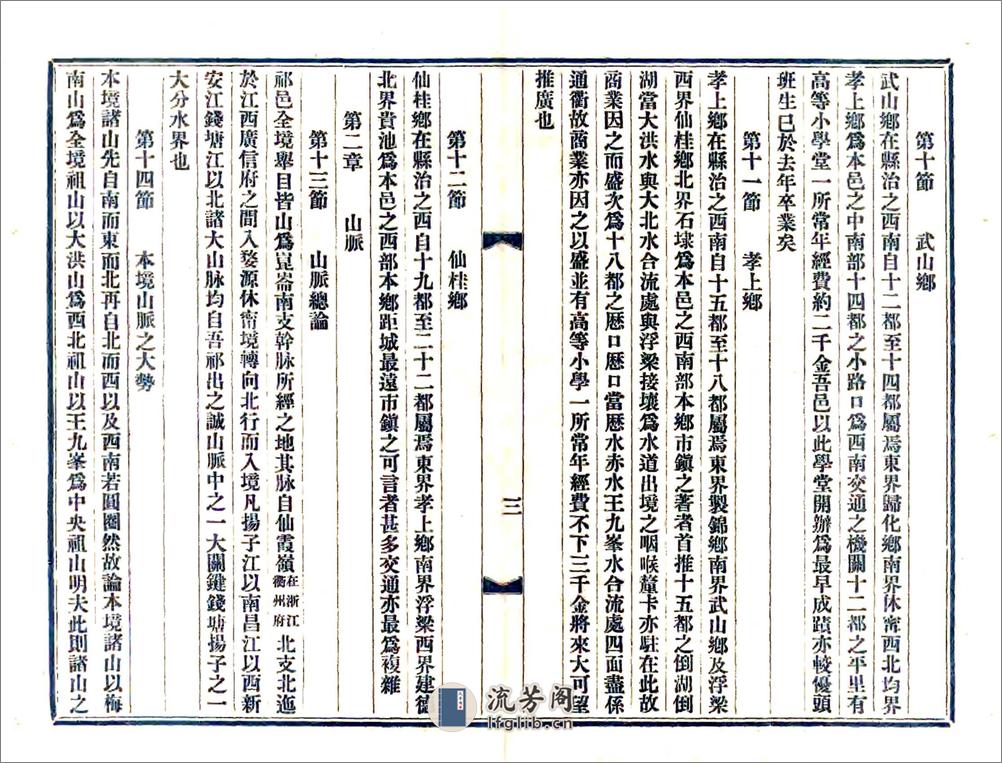 第十節　武山鄉
武山鄉在縣治之西南自十二都至十四都屬焉東界歸化鄉南界休甯西北均界
孝上鄉爲本邑之中南部十四都之小路口爲西南交通之機關十二都之平里有
高等小學堂一所常年經費約二千金吾邑以此學堂開辦爲最早成蹟亦較優頭
班生已於去年卒業矣
第十一節　孝上鄉
孝上鄉在縣治之西南自十五都至十八都屬焉東界製錦鄉南界武山鄉及浮梁
西界仙桂鄉北界石埭爲本邑之西南部本鄉市鎮之著者首推十五都之倒湖倒
湖當大洪水與大北水合流處與浮梁接壤爲水道出境之咽喉釐卡亦駐在此故
商業因之而盛次爲十八都之歷口歷口當歷水赤水王九峯水合流處四面盡係
通衢故商業亦因之以盛並有高等小學一所常年經費不下三千金將來大可望
推廣也
三
第十二節　仙桂鄉
仙桂鄉在縣治之西自十九都至二十二都屬焉東界孝上鄉南界浮梁西界建德
北界貴池爲本邑之西部本鄉距城最遠市鎮之可言者甚多交通亦最爲複雜
第二章　山脈
第十三節　山脈總論
祁邑全境舉目皆山爲崑崙南支幹脈所經之地其脈自仙霞嶺在浙江衢州府北支北迤
於江西廣信府之間入婺源休甯境轉向北行而入境凡揚子江以南昌江以西新
安江錢塘江以北諸大山脈均自吾祁出之誠山脈中之一大關鍵錢塘揚子之一
大分水界也
第十四節　本境山脈之大勢
本境諸山先自南而東而北再自北而西以及西南若圓圈然故論本境諸山以梅
南山爲全境祖山以大洪山爲西北祖山以王九峯爲中央祖山明夫此則諸山之
流芳阁
lfglib.cn